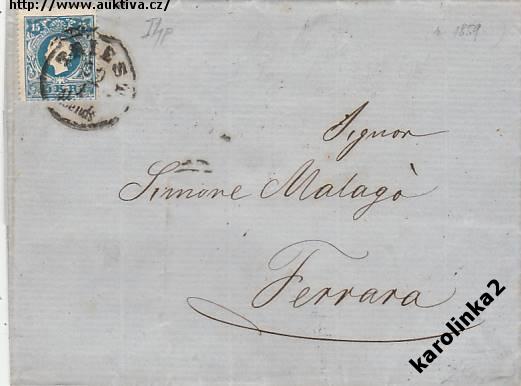 http://www.auktiva.cz/
15 15
TRIEST
IIyp
1859
Signor
Simone Malagò
Ferrara
karolinka2